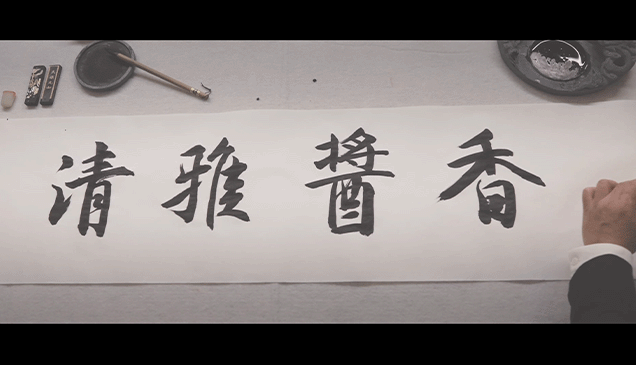 清雅醬香